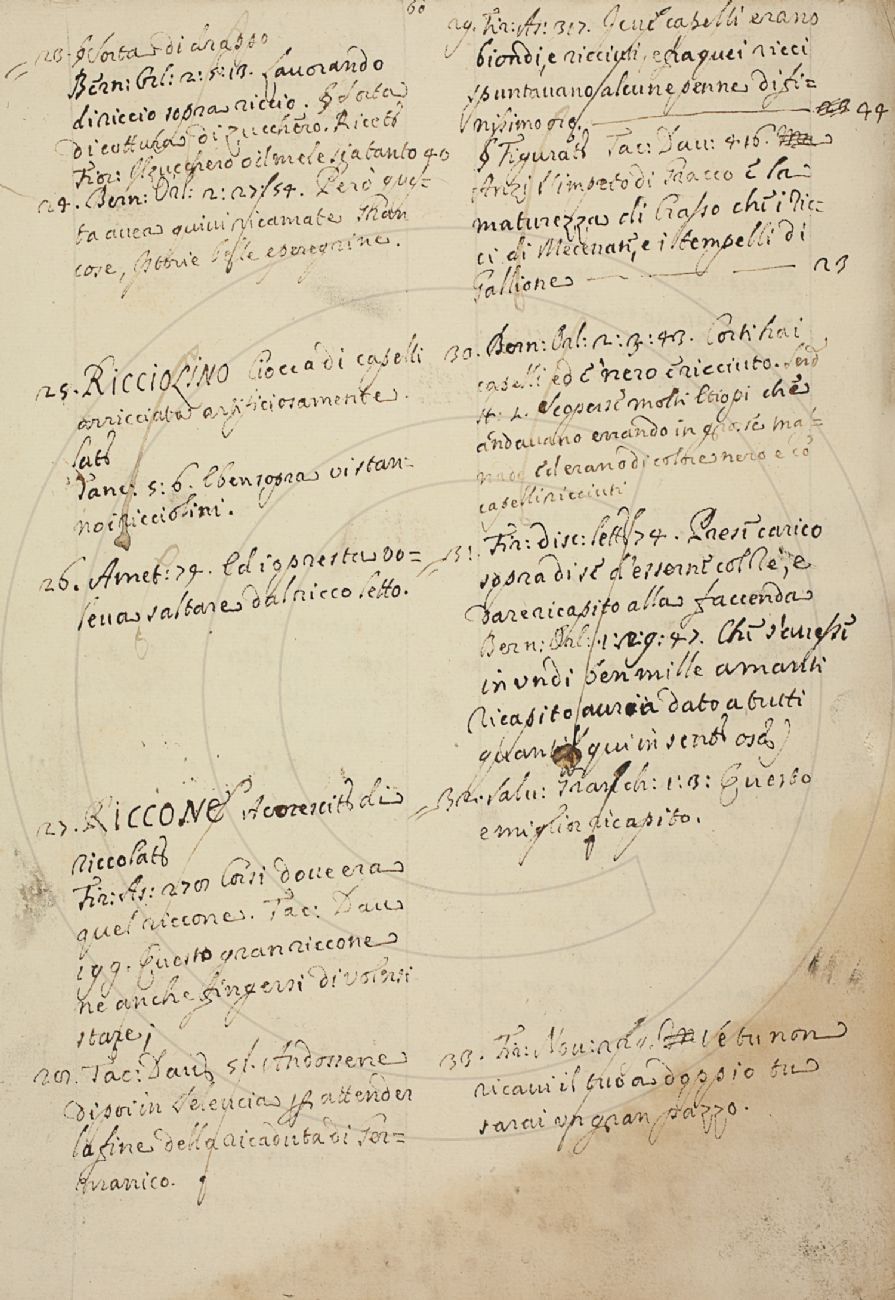 60
23. § Sorta di drappo
Bern: Orl: 2: 5: 13. Lavorando
di riccio sopra riccio. § Sorta
di cottura di Zucchero. Ricett
Fior: Il zucchero o il mele sia tanto 40
24. Bern: Orl: 2: 27: 54. Però ques-
ta avea quivi ricamate
cose, Istorie belle e peregrine.
25. RICCIOLINO Ciocca di capelli
arricciata artificiosamente.
lat
Tanc: 5: 6. E ben sopra vi stan-
no i ricciolini.
26. Amet: 79. Ed io presta vo-
leva saltare dal ricco letto.
27. RICCONE Accrescit di
ricco lat
Fir: As: 270 Corsi dove era
quel riccone. Tac: Dav
199. Questo gran riccone
ne anche fingersi di volersi
stare;
28. Tac: Dav 51. Andossene
dipoi in Seleucia p attender
la fine della ricaduta di Ger=
manico.
29. Fir: As: 317. I cui capelli erano
biondi, e ricciuti, e fra quei ricci
spuntavano alcune penne di fi=
nissimo oro. 44
§ Figurat Tac: Dav: 416.
Anzi l'impeto di Gracco è la
maturezza di Crasso che i ric=
ci di Mecenate, e i tempelli di
Gallione 23
30. Bern: Orl: 2: 3: 43. Corti hai
capelli ed è nero e ricciuto. Serd
st: 2. Scoperse molti Etiopi che
andavano errando in
nade Ed erano di colore nero e co
capelli ricciuti
31. Fir: disc: lett 74. Presi carico
sopra di sè d'esserne colle, e
dare ricapito alla faccenda
Bern: Orl: 1: 29: 47. Chi s'avessi
in un dì ben mille amanti
Ricapito avria dato a tutti
quanti (qui in sent osc)
32. Salv: Granch: 1: 3: Questo
e miglior ricapito.
33. Fir: Nov: Se tu non
ricavi il tuo a doppio tu
sarai un gran pazzo.